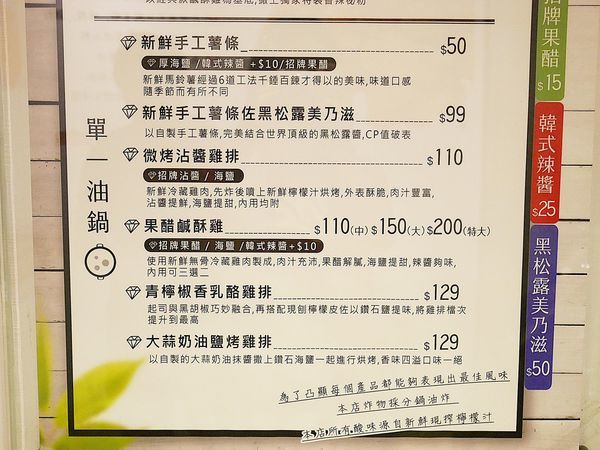 新鮮手工薯條 $50
厚海鹽/韓式辣醬+$10/招牌果醋
新鮮馬鈴薯經過6道工法千錘百鍊才得以的美味,味道口感
隨季節而有所不同
新鮮手工薯條佐黑松露美乃滋 $99
以自製手工薯條,完美結合世界頂級的黑松露醬,CP值破表
微烤沾醬雞排 $110
招牌沾醬/海鹽
新鮮冷藏雞肉,先炸後噴上新鮮檸檬汁烘烤,外表酥脆,肉汁豐富,
沾醬提鮮,海鹽提甜,內用均附
果醋鹹酥雞 $110(中) $150(大) $200(特大)
招牌果醋/海鹽/韓式辣醬+$10
使用新鮮無骨冷藏雞肉製成,肉汁充沛,果醋解膩,海鹽提甜,辣醬夠味,
內用可三選二
青檸椒香乳酪雞排 $129
起司與黑胡椒巧妙融合,再搭配現刨檸檬皮佐以鑽石鹽提味,將雞排檔次
提升到最高
大蒜奶油鹽烤雞排 $129
以自製的大蒜奶油抹醬撒上鑽石海鹽一起進行烘烤,香味四溢口味一絕
為了凸顯每個產品都能夠表現出最佳風味
本店炸物採分鍋油炸
本店所有酸味源自新鮮現榨檸檬汁
單一油鍋
招牌果醋
$15
韓式辣醬
$25
黑松露美乃滋
$50